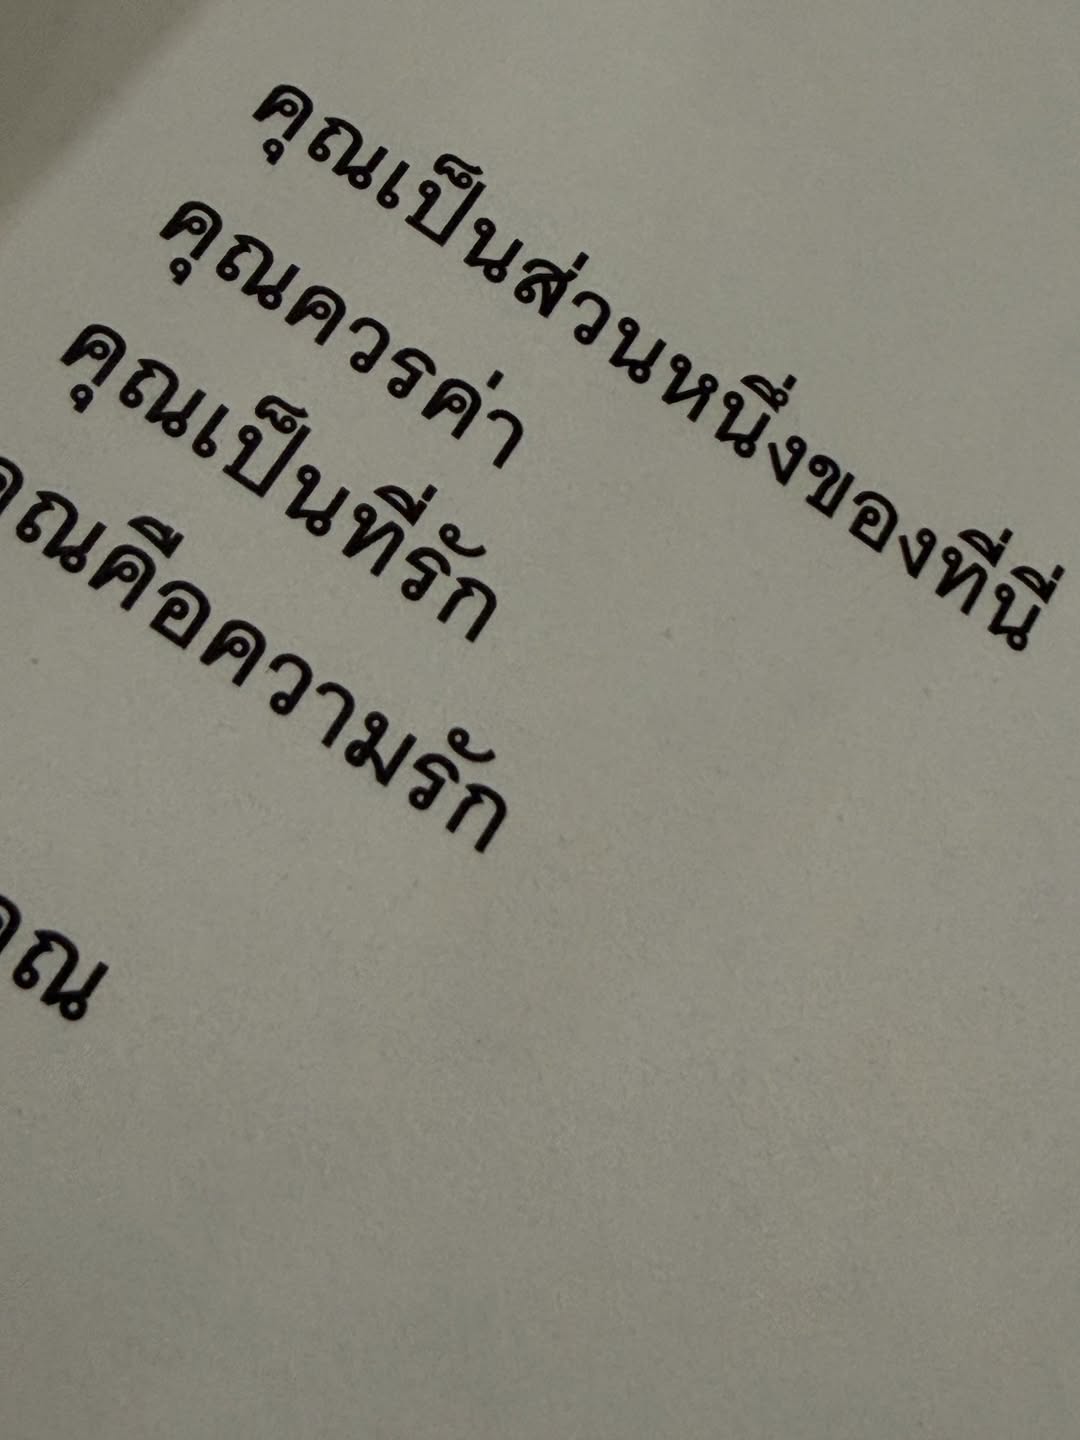 คุณเป็นส่วนหนึ่งของที่นี่
คุณควรค่า
คุณเป็นที่รัก
คุณคือความรัก
คุณ